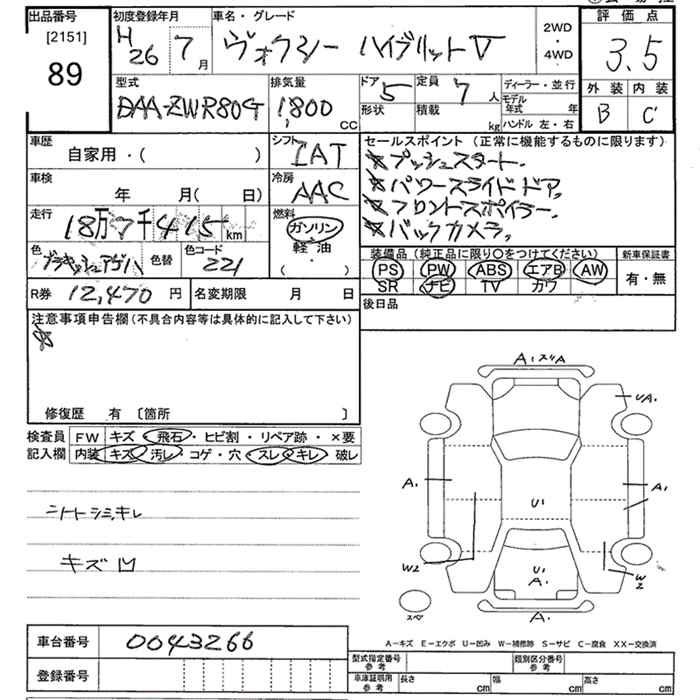 出品番号
[2151]
89
初度登録年月
H
26 7 月
車名・グレード
ヴォクシー ハイブリットV
2WD
・
4WD
評価点
3.5
外装 内装
B C
型式
DAA-ZWR80G
排気量
1,800
CC
ドア 5
形状
定員 7 人
積載 kg
ディーラー・並行
モデル年式 年
ハンドル 左・右
車歴
自家用・( )
シフト
IAT
車検
年 月( 日)
冷房
AAC
走行
18万7千415 km
燃料
ガソリン
軽・油
・
( )
色
色替
色コード
221
R券 12,470 円
名変期限 月 日
セールスポイント (正常に機能するものに限ります)
プッシュスタート.
パワースライドドア.
フロントスポイラー.
バックカメラ.
装備品(純正品に限り○をつけてください)
PS PW ABS エアB AW
SR ナビ TV カワ
新車保証書
有・無
後日品
注意事項申告欄(不具合内容等は具体的に記入して下さい)
修復歴 有 〔箇所 〕
検査員
記入欄
FW キズ・飛石・ヒビ割・リペア跡・×要
内装 キズ・汚レ・コゲ・穴・スレ・キレ・破レ
シートシミ.キレ
キズ凹
A.スリA
UA.
A.
A.
U1
W2
U1
A.
W2
スペ
A.
A-キズ E-エクボ U-凹み W-補修跡 S-サビ C-腐食 XX-交換済
車台番号 0043266
登録番号
型式指定番号
参考
類別区分番号
参考
車庫証明用
参考
長さ cm
幅 cm
高さ cm